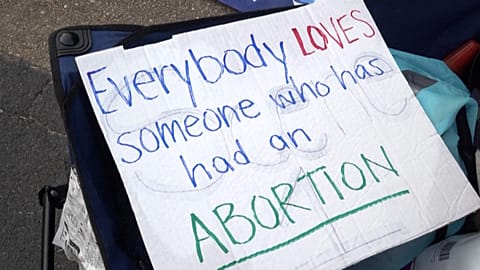 Everybody LOVES
someone who has
had an
ABORTION